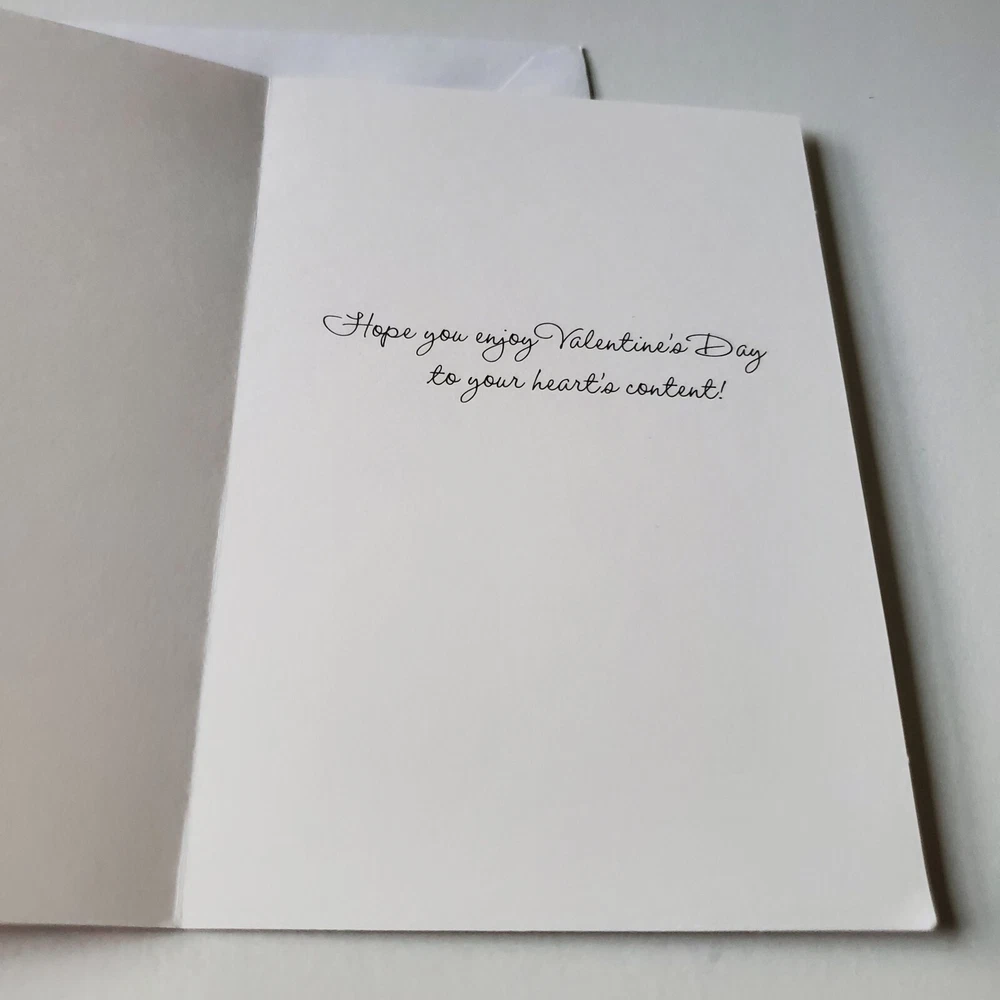 Hope you enjoy Valentine's Day
to your heart's content!